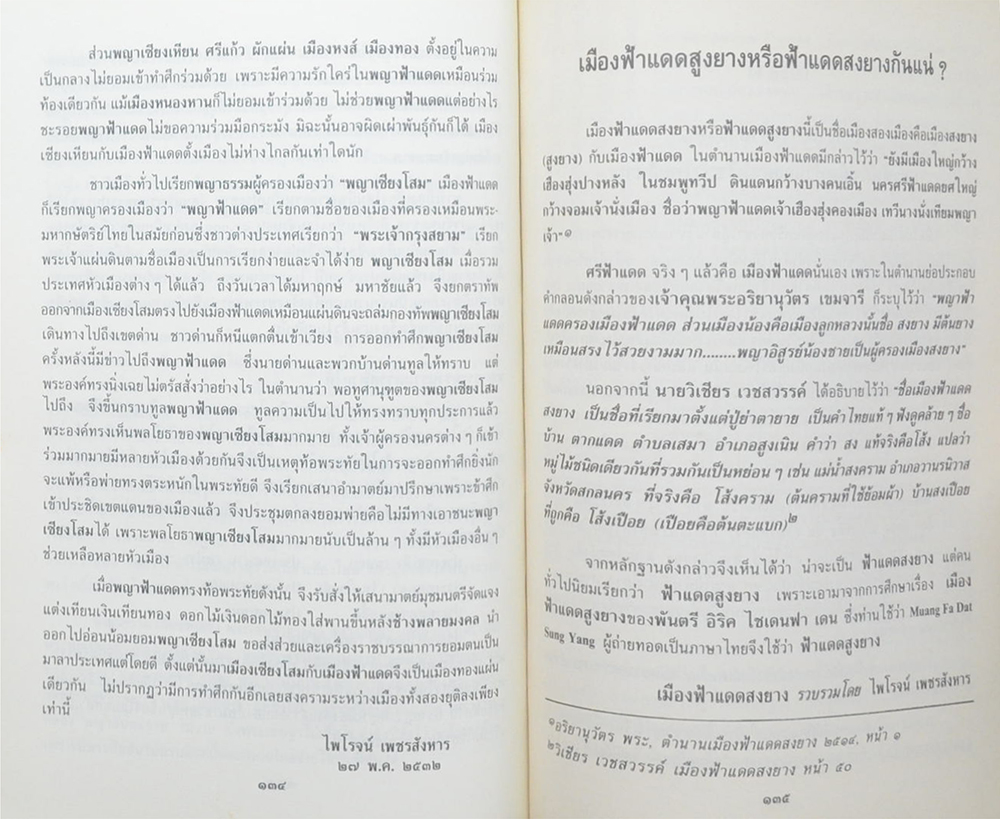 ส่วนพญาเซียงเหียน ศรีแก้ว ผักแผ่น เมืองหงส์ เมืองทอง ตั้งอยู่ในความ
เป็นกลางไม่ยอมเข้าทำศึกร่วมด้วย เพราะมีความรักใคร่ในพญาฟ้าแดดเหมือนร่วม
ท้องเดียวกัน แม้เมืองหนองหานก็ไม่ยอมเข้าร่วมด้วย ไม่ช่วยพญาฟ้าแดดแต่อย่างไร
ชะรอยพญาฟ้าแดดไม่ขอความร่วมมือกระมัง มิฉะนั้นอาจผิดเผ่าพันธุ์กันก็ได้ เมือง
เซียงเหียนกับเมืองฟ้าแดดตั้งเมืองไม่ห่างไกลกันเท่าใดนัก
ชาวเมืองทั่วไปเรียกพญาธรรมผู้ครองเมืองว่า "พญาเซียงโสม" เมืองฟ้าแดด
ก็เรียกพญาครองเมืองว่า "พญาฟ้าแดด" เรียกตามชื่อของเมืองที่ครองเหมือนพระ-
มหากษัตริย์ไทยในสมัยก่อนซึ่งชาวต่างประเทศเรียกว่า "พระเจ้ากรุงสยาม" เรียก
พระเจ้าแผ่นดินตามชื่อเมืองเป็นการเรียกง่ายและจำได้ง่าย พญาเซียงโสม เมื่อรวม
ประเทศหัวเมืองต่าง ๆ ได้แล้ว ถึงวันเวลาได้มหาฤกษ์ มหาชัยแล้ว จึงยกตราทัพ
ออกจากเมืองเซียงโสมตรงไปยังเมืองฟ้าแดดเหมือนแผ่นดินจะถล่มกองทัพพญาเซียงโสม
เดินทางไปถึงเขตด่าน ชาวด่านก็หนีแตกตื่นเข้าเวียง การออกทำศึกพญาเซียงโสม
ครั้งหลังนี้มีข่าวไปถึงพญาฟ้าแดด ซึ่งนายด่านและพวกบ้านด่านทูลให้ทราบ แต่
พระองค์ทรงนิ่งเฉยไม่ตรัสสั่งว่าอย่างไร ในตำนานว่า พอทูศานุฑูตของพญาเซียงโสม
ไปถึง จึงขึ้นกราบทูลพญาฟ้าแดด ทูลความเป็นไปให้ทรงทราบทุกประการแล้ว
พระองค์ทรงเห็นพลโยธาของพญาเซียงโสมมากมาย ทั้งเจ้าผู้ครองนครต่าง ๆ ก็เข้า
ร่วมมากมายมีหลายหัวเมืองด้วยกันจึงเป็นเหตุท้อพระทัยในการจะออกทำศึกยิ่งนัก
จะแพ้หรือพ่ายทรงตระหนักในพระทัยดี จึงเรียกเสนาอำมาตย์มาปรึกษาเพราะข้าศึก
เข้าประชิดเขตแดนของเมืองแล้ว จึงประชุมตกลงยอมพ่ายคือไม่มีทางเอาชนะพญา
เซียงโสมได้ เพราะพลโยธาพญาเซียงโสมมากมายนับเป็นล้าน ๆ ทั้งมีหัวเมืองอื่น ๆ
ช่วยเหลือหลายหัวเมือง
เมื่อพญาฟ้าแดดทรงท้อพระทัยดังนั้น จึงรับสั่งให้เสนามาตย์มุขมนตรีจัดแจง
แต่งเทียนเงินเทียนทอง ดอกไม้เงินดอกไม้ทองใส่พานขึ้นหลังช้างพลายมงคล นำ
ออกไปอ่อนน้อมยอมพญาเซียงโสม ขอส่งส่วยและเครื่องราชบรรณาการยอมตนเป็น
มาลาประเทศแต่โดยดี ตั้งแต่นั้นมาเมืองเซียงโสมกับเมืองฟ้าแดดจึงเป็นเมืองทองแผ่น
เดียวกัน ไม่ปรากฏว่ามีการทำศึกกันอีกเลยสงครามระหว่างเมืองทั้งสองยุติลงเพียง
เท่านี้
ไพโรจน์ เพชรสังหาร
๒๗ พ.ค. ๒๕๓๒
๑๓๔
เมืองฟ้าแดดสูงยางหรือฟ้าแดดสงยางกันแน่ ?
เมืองฟ้าแดดสงยางหรือฟ้าแดดสูงยางนี้เป็นชื่อเมืองสองเมืองคือเมืองสงยาง
(สูงยาง) กับเมืองฟ้าแดด ในตำนานเมืองฟ้าแดดมีกล่าวไว้ว่า "ยังมีเมืองใหญ่กว้าง
เฮืองฮุ่งปางหลัง ในชมพูทวีป ดินแดนกว้างบางคนเอิ้น นครศรีฟ้าแดดยศใหญ่
กว้างจอมเจ้านั่งเมือง ชื่อว่าพญาฟ้าแดดเจ้าเฮืองฮุ่งคองเมือง เทวีนางนั่งเทียมพญา
เจ้า"๑
ศรีฟ้าแดด จริง ๆ แล้วคือ เมืองฟ้าแดดนั่นเอง เพราะในตำนานย่อประกอบ
คำกลอนดังกล่าวของเจ้าคุณพระอริยานุวัตร เขมจารี ก็ระบุไว้ว่า "พญาฟ้า
แดดครองเมืองฟ้าแดด ส่วนเมืองน้องคือเมืองลูกหลวงนั้นชื่อ สงยาง มีต้นยาง
เหมือนสรงไว้สวยงามมาก........พญาอิสูรย์น้องชายเป็นผู้ครองเมืองสงยาง"
นอกจากนี้ นายวิเชียร เวชสวรรค์ ได้อธิบายไว้ว่า "ชื่อเมืองฟ้าแดด
สงยาง เป็นชื่อที่เรียกมาตั้งแต่ปู่ย่าตายาย เป็นคำไทยแท้ ๆ ฟังดูคล้าย ๆ ชื่อ
บ้าน ตากแดด ตำบลเสมา อำเภอสูงเนิน คำว่า สง แท้จริงคือโส้ง แปลว่า
หมู่ไม้ชนิดเดียวกันที่รวมกันเป็นหย่อน ๆ เช่น แม่น้ำสงคราม อำเภอวานรนิวาส
จังหวัดสกลนคร ที่จริงคือ โส้งคราม (ต้นครามที่ใช้ย้อมผ้า) บ้านสงเปือย
ที่ถูกคือ โส้งเปือย (เปือยคือต้นตะแบก)๒
จากหลักฐานดังกล่าวจึงเห็นได้ว่า น่าจะเป็น ฟ้าแดดสงยาง แต่คน
ทั่วไปนิยมเรียกว่า ฟ้าแดดสูงยาง เพราะเอามาจากการศึกษาเรื่อง เมือง
ฟ้าแดดสูงยางของพันตรี อิริค ไซเดนฟา เดน ซึ่งท่านใช้ว่า Muang Fa Dat
Sung Yang ผู้ถ่ายทอดเป็นภาษาไทยจึงใช้ว่า ฟ้าแดดสูงยาง
เมืองฟ้าแดดสงยาง รวบรวมโดย ไพโรจน์ เพชรสังหาร
๑อริยานุวัตร พระ, ตำนานเมืองฟ้าแดดสงยาง ๒๕๑๔, หน้า ๑
๒วิเชียร เวชสวรรค์ เมืองฟ้าแดดสงยาง หน้า ๕๐
๑๓๕